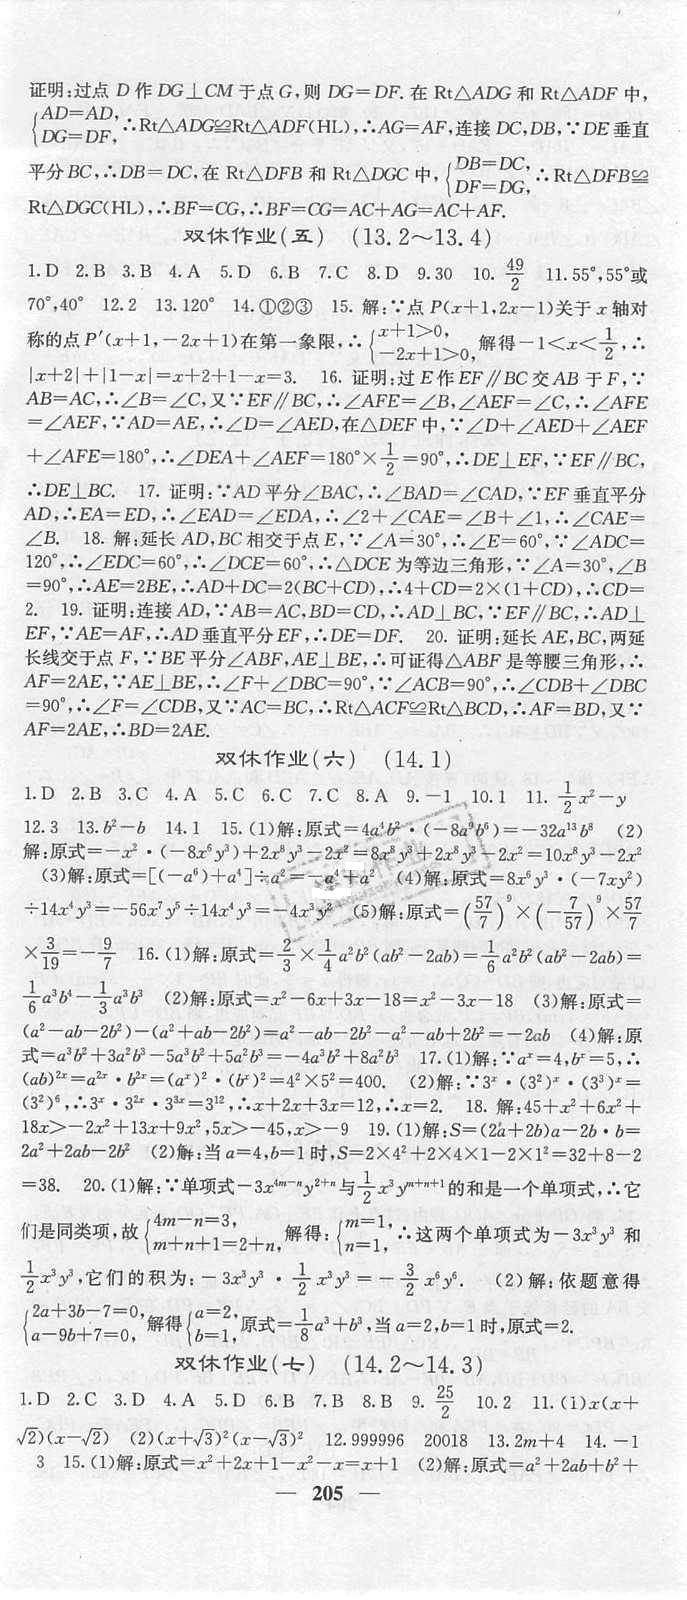 证明:过点 D 作 DG⊥CM 于点 G,则 DG=DF.在 Rt△ADG 和 Rt△ADF 中,
{AD=AD, DG=DF, ∴Rt△ADG≌Rt△ADF(HL),∴AG=AF,连接 DC,DB,∵DE 垂直
平分 BC,∴DB=DC,在 Rt△DFB 和 Rt△DGC 中,{DB=DC, DF=DG, ∴Rt△DFB≌
Rt△DGC(HL),∴BF=CG,∴BF=CG=AC+AG=AC+AF.
双休作业(五) (13.2～13.4)
1.D 2.B 3.B 4.A 5.D 6.B 7.C 8.D 9.30 10.49/2 11.55°,55°或
70°,40° 12.2 13.120° 14.①②③ 15. 解:∵点 P(x+1,2x-1)关于 x 轴对
称的点 P′(x+1,-2x+1)在第一象限,∴{x+1>0, -2x+1>0, 解得-1<x<1/2,∴
|x+2|+|1-x|=x+2+1-x=3. 16. 证明:过 E 作 EF∥BC 交 AB 于 F,∵
AB=AC,∴∠B=∠C,又∵EF∥BC,∴∠AFE=∠B,∠AEF=∠C,∴∠AFE
=∠AEF,∵AD=AE,∴∠D=∠AED,在△DEF 中,∵∠D+∠AED+∠AEF
+∠AFE=180°,∴∠DEA+∠AEF=180°×1/2=90°,∴DE⊥EF,∵EF∥BC,
∴DE⊥BC. 17. 证明:∵AD 平分∠BAC,∴∠BAD=∠CAD,∵EF 垂直平分
AD,∴EA=ED,∴∠EAD=∠EDA,∴∠2+∠CAE=∠B+∠1,∴∠CAE=
∠B. 18. 解:延长 AD,BC 相交于点 E,∵∠A=30°,∴∠E=60°,∵∠ADC=
120°,∴∠EDC=60°,∴∠DCE=60°,∴△DCE 为等边三角形,∵∠A=30°,∠B
=90°,∴AE=2BE,∴AD+DC=2(BC+CD),∴4+CD=2×(1+CD),∴CD=
2. 19. 证明:连接 AD,∵AB=AC,BD=CD,∴AD⊥BC,∵EF∥BC,∴AD⊥
EF,∵AE=AF,∴AD 垂直平分 EF,∴DE=DF. 20. 证明:延长 AE,BC,两延
长线交于点 F,∵BE 平分∠ABF,AE⊥BE,∴可证得△ABF 是等腰三角形,∴
AF=2AE,∵AE⊥BE,∴∠F+∠DBC=90°,∵∠ACB=90°,∴∠CDB+∠DBC
=90°,∴∠F=∠CDB,又∵AC=BC,∴Rt△ACF≌Rt△BCD,∴AF=BD,又∵
AF=2AE,∴BD=2AE.
双休作业(六) (14.1)
1.D 2.B 3.C 4.A 5.C 6.C 7.C 8.A 9.-1 10.1 11.1/2x²-y
12.3 13.b²-b 14.1 15.(1)解:原式=4a⁴b²·(-8a⁹b⁶)=-32a¹³b⁸ (2)
解:原式=-x²·(-8x⁶y³)+2x⁸y³-2x²=8x⁸y³+2x⁸y³-2x²=10x⁸y³-2x²
(3)解:原式=[(-a⁶)+a⁴]÷a²=-a⁴+a² (4)解:原式=8x⁶y³·(-7xy²)
÷14x⁴y³=-56x⁷y⁵÷14x⁴y³=-4x³y² (5)解:原式=(57/7)⁹×(-7/57)⁹×57/7
×3/19=-9/7 16.(1)解:原式=2/3×1/4a²b²(ab²-2ab)=1/6a²b²(ab²-2ab)=
1/6a³b⁴-1/3a³b³ (2)解:原式=x²-6x+3x-18=x²-3x-18 (3)解:原式=
(a²-ab-2b²)-(a²+ab-2b²)=a²-ab-2b²-a²-ab+2b²=-2ab (4)解:原
式=a³b²+3a²b³-5a³b²+5a²b³=-4a³b²+8a²b³ 17.(1)解:∵aˣ=4,bˣ=5,∴
(ab)²ˣ=a²ˣ·b²ˣ=(aˣ)²·(bˣ)²=4²×5²=400. (2)解:∵3ˣ·(3²)ˣ·(3³)ˣ=
(3²)⁶,∴3ˣ·3²ˣ·3³ˣ=3¹²,∴x+2x+3x=12,∴x=2. 18. 解:45+x²+6x²+
18x>-2x²+13x+9x²,5x>-45,x>-9 19.(1)解:S=(2a+2b)a-2b·b=
2a²+2ab-2b² (2)解:当 a=4,b=1 时,S=2×4²+2×4×1-2×1²=32+8-2
=38. 20.(1)解:∵单项式-3x⁴ᵐ⁻ⁿy²⁺ⁿ与1/2x³yᵐ⁺ⁿ⁺¹的和是一个单项式,∴它
们是同类项,故{4m-n=3, m+n+1=2+n, 解得:{m=1, n=1, ∴这两个单项式为-3x³y³ 和
1/2x³y³,它们的积为:-3x³y³·1/2x³y³=-3/2x⁶y⁶. (2)解:依题意得
{2a+3b-7=0, a-9b+7=0, 解得{a=2, b=1, 原式=1/8a³+b³,当 a=2,b=1 时,原式=2.
双休作业(七) (14.2～14.3)
1.D 2.C 3.D 4.A 5.D 6.B 7.B 8.B 9.25/2 10.2 11.(1)x(x+
√2)(x-√2) (2)(x+√3)²(x-√3)² 12.999996 20018 13.2m+4 14.-1
3 15.(1)解:原式=x²+2x+1-x²-x=x+1 (2)解:原式=a²+2ab+b²+
— 205 —